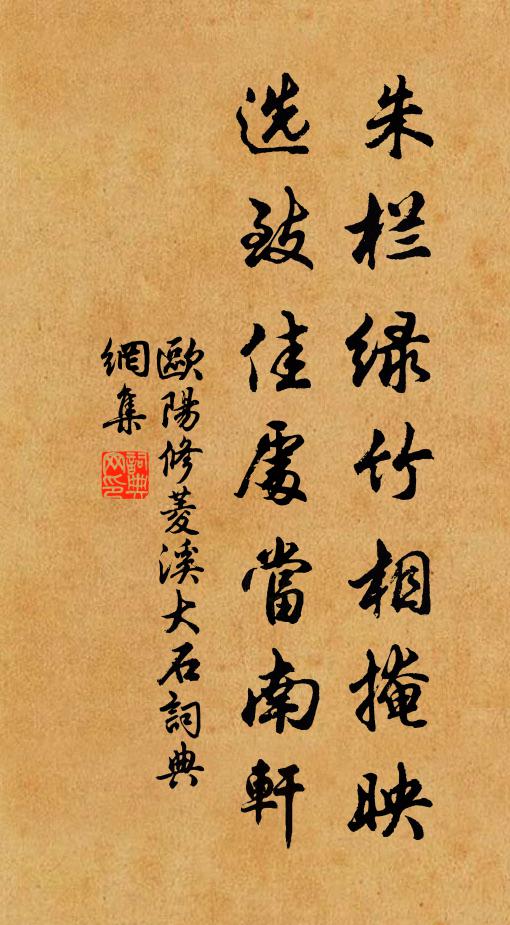 朱栏绿竹相掩映
选致佳處當南軒
歐陽修菱溪大石詞典
網集
詞典
网印